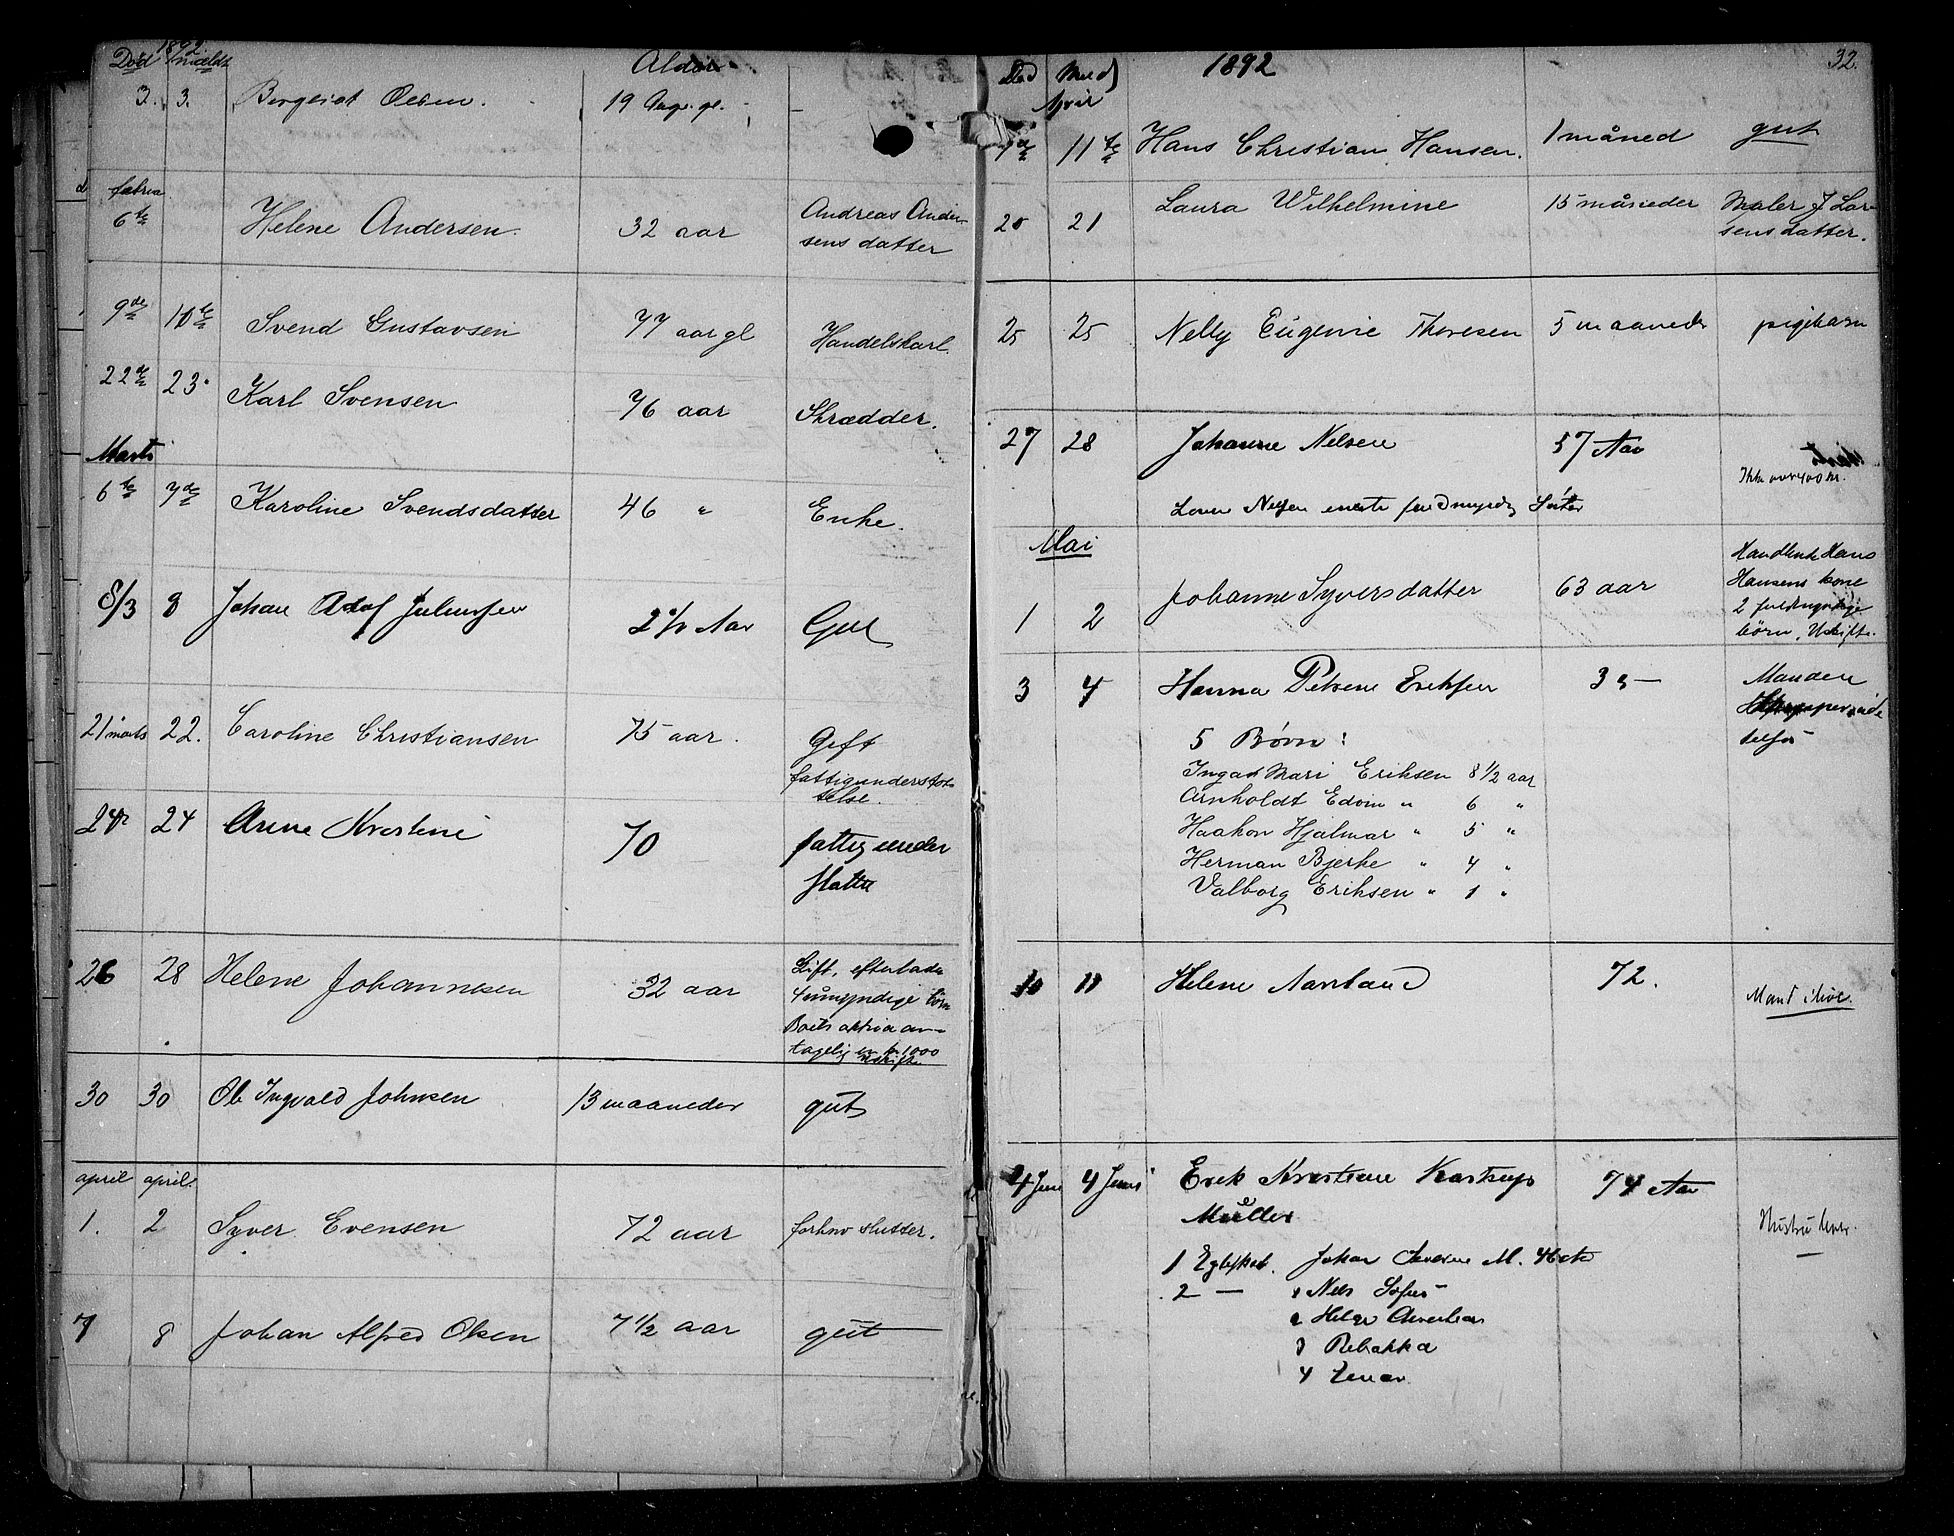 1892.
Død mældt Alder
3. 3. Borghild Olsen. 19 Dage gl.
februa
6te Helene Andersen. 32 aar Andreas Ander-
sens datter
9de 10te Svend Gustavsen 77 aar gl Handelskarl.
22de 23. Karl Svensen 76 aar Skrædder.
Marts
6te 7de Karoline Svendsdatter 46 " Enke.
8/3 8 Johan Adolf Juliussen 2 1/2 Aar Gut
21 marts 22. Caroline Christiansen 75 aar. Gift
fattigunderstøt-
telse.
24 24 Anne Kristine 70 fattigunder
støttet
26 28 Helene Johannesen 32 aar Gift, efterlader
4 umyndige børn
Boets aktiva an-
tagelig kr. 1000
30 30 Ole Ingvald Johnsen 13 maaneder gut
april april.
1. 2 Syver Evensen 72 aar forhnv slutter.
7 8 Johan Alfred Olsen 7 1/2 aar gut
1892 32.
Død Meld
April
9de 11te Hans Christian Hansen. 1 måned gut
20 21 Laura Wilhelmine 15 måneder Maler J Lar-
sens datter.
25 25 Nelly Eugenie Thoresen 5 maaneder pigebarn
27 28 Johanne Nelsen 57 Aar
Ikke over 400 kr.
Nelsen eneste fuldmyndig Søster
Mai
1 2 Johanne Syversdatter 63 aar Handlende Hans
Hansens kone
2 fuldmyndige
børn. Uskifte.
3 4 Hanna Petrine Eriksen 35 — Manden
5 Børn:
Inga Mari Eriksen 8 1/2 aar
Arnholdt Edvin " 6 "
Haakon Hjalmar " 5 "
Herman Bjerke " 4 "
Valborg Eriksen " 1 "
10 11 Helene Aavland 72. Mand i live.
4 Juni 4 Juni Erik Kristian Kastrup 74 Aar
Müller Hustru lever.
1 Egteskab. Johan M. 46
2 — 1 Nels Sofus
2 Helge Christian
3 Rebekka
4 Einar